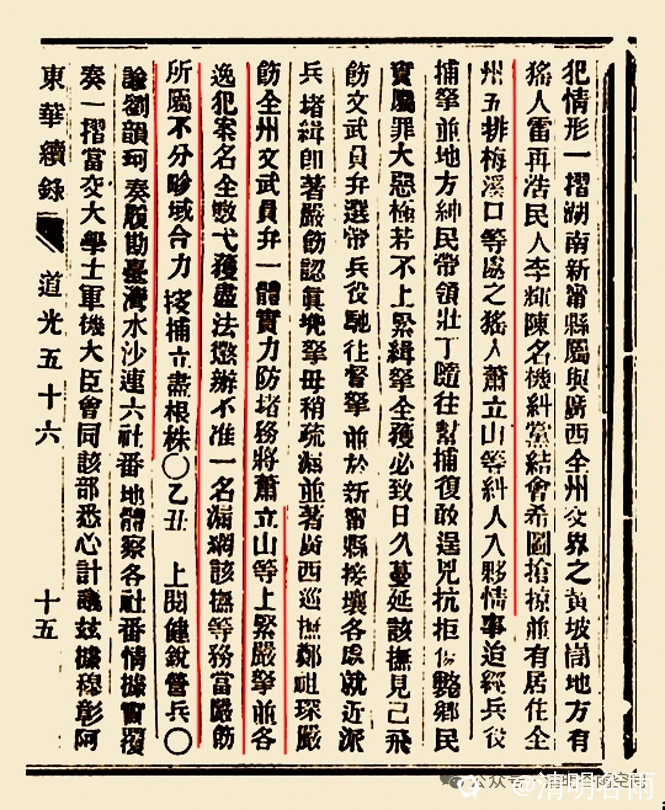 犯情形一摺湖南新甯縣屬與廣西全州交界之黃坡崗地方有
猺人雷再浩民人李輝陳名機糾黨結會希圖搶掠並有居住全
州五排梅溪口等處之猺人蕭立山等糾人入夥情事迨經兵役
捕拏並地方紳民帶領壯丁隨往幫捕復敢逞兇抗拒傷斃鄉民
實屬罪大惡極若不上緊緝拏全獲必致日久蔓延該撫見已飛
飭文武員弁選帶兵役馳往督拏並於新甯縣接壤各處就近派
兵堵緝卽著嚴飭認眞兜拏毋稍疏漏並著廣西巡撫鄭祖琛嚴
飭全州文武員弁一體實力防堵務將蕭立山等上緊嚴拏並各
逸犯案名全數弋獲盡法懲辦不准一名漏網該撫等務當嚴飭
所屬不分畛域合力㨿捕立盡根株〇乙丑 上閱健銳營兵〇
諭劉韻珂奏履勘臺灣水沙連六社番地體察各社番情據實覆
奏一摺當交大學士軍機大臣會同該部悉心計議玆據穆彰阿
東華續錄 道光五十六 十五
公众号
@清明谷雨